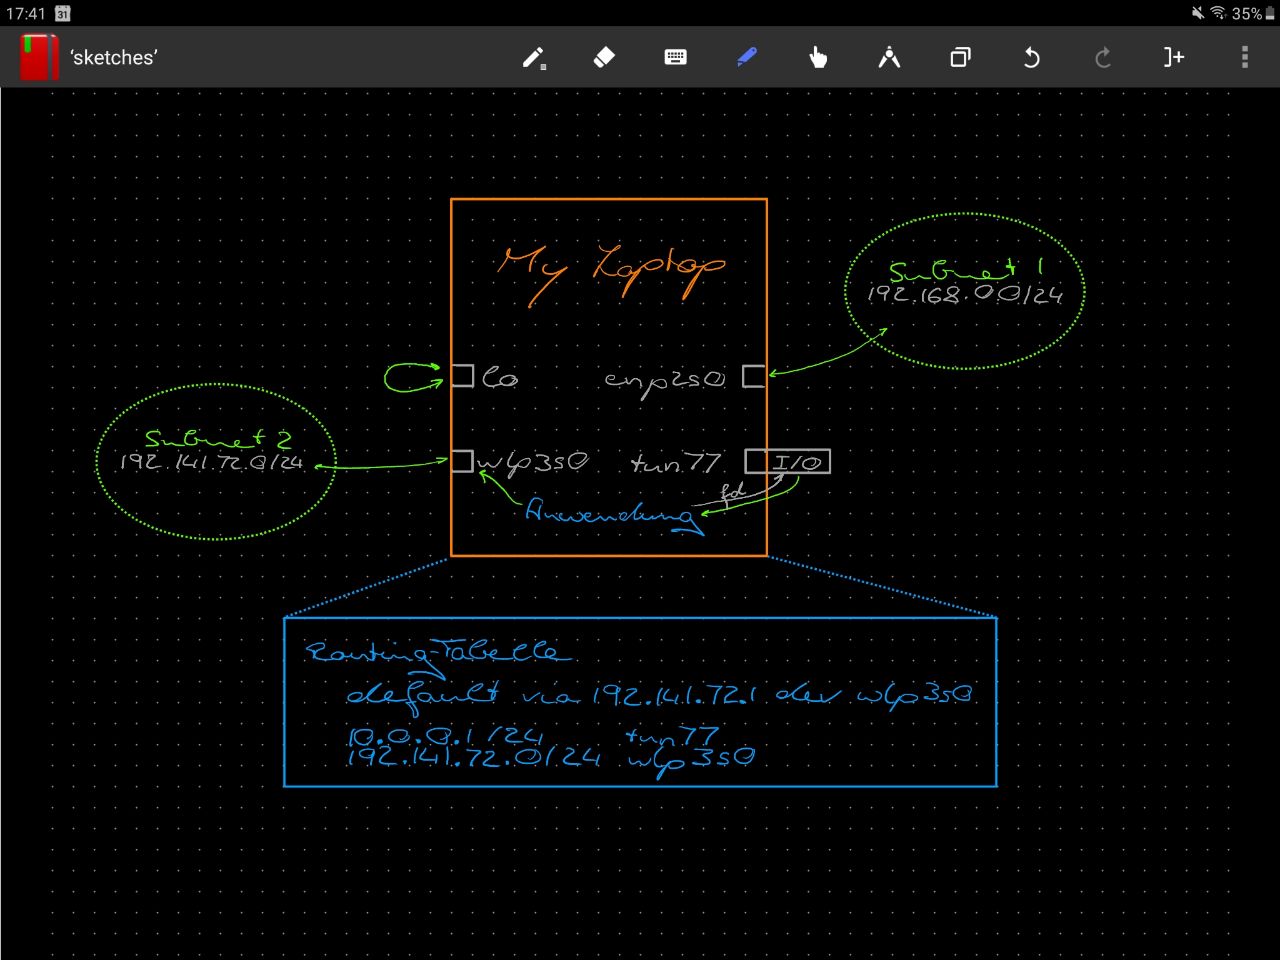 17:41 31 35%
'sketches'
My Laptop
Subnet 1
192.168.0.0/24
lo enp2s0
Subnet 2
192.141.72.0/24
wlp3s0 tun77 I/O
fd
Anwendung
Routing-Tabelle
default via 192.141.72.1 dev wlp3s0
10.0.0.1/24 tun77
192.141.72.0/24 wlp3s0